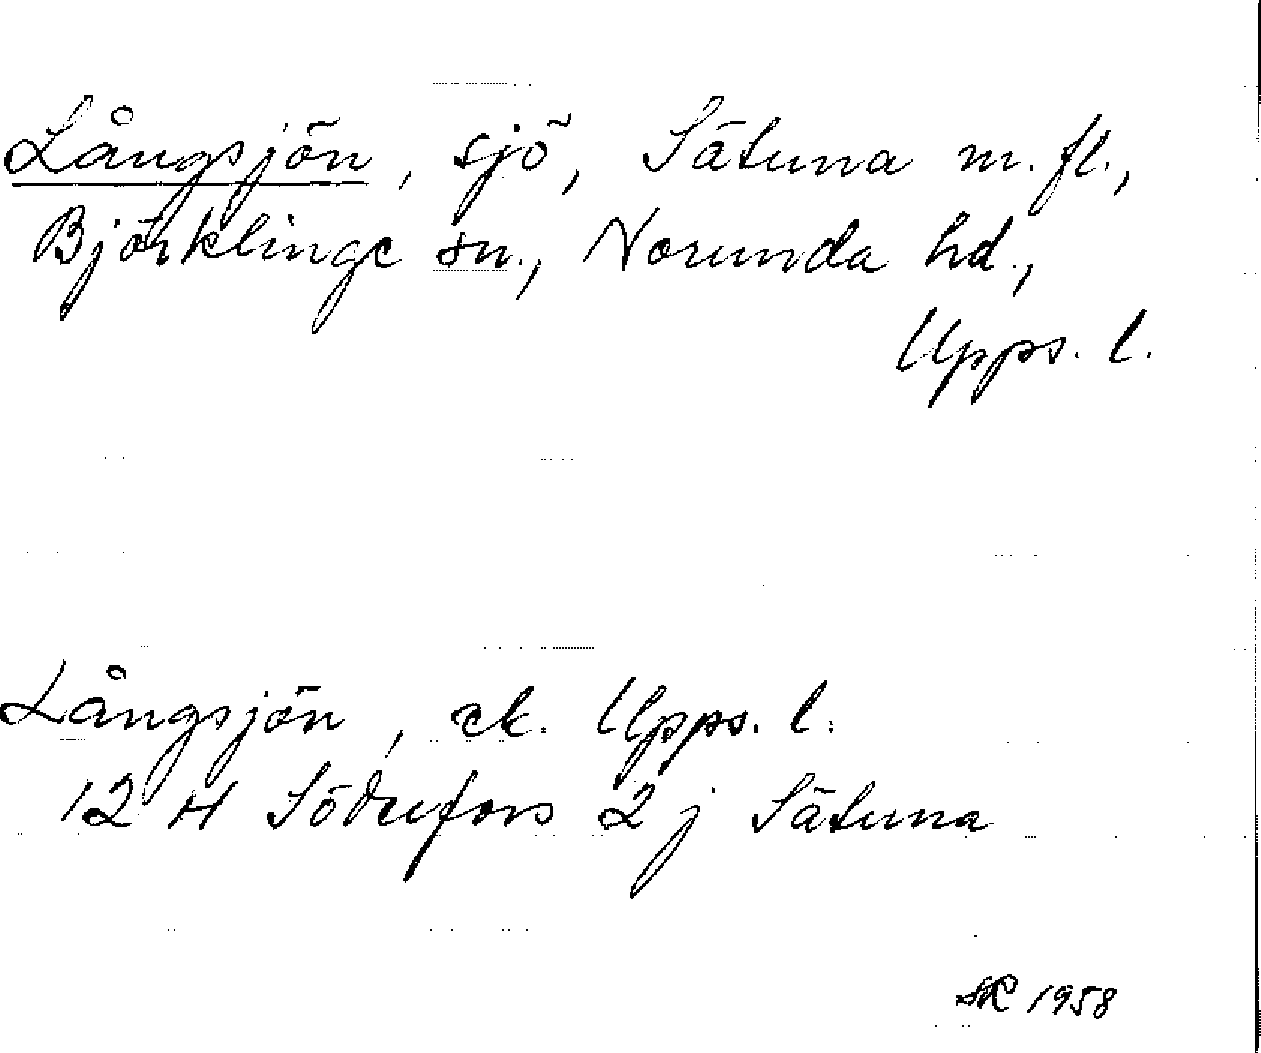 Långsjön, sjö, Sätuna m. fl.,
Björklinge sn., Norunda hd.,
Upps. l.
Långsjön, ek. Upps. l.
12 H Söderfors 2 j Sätuna
1958